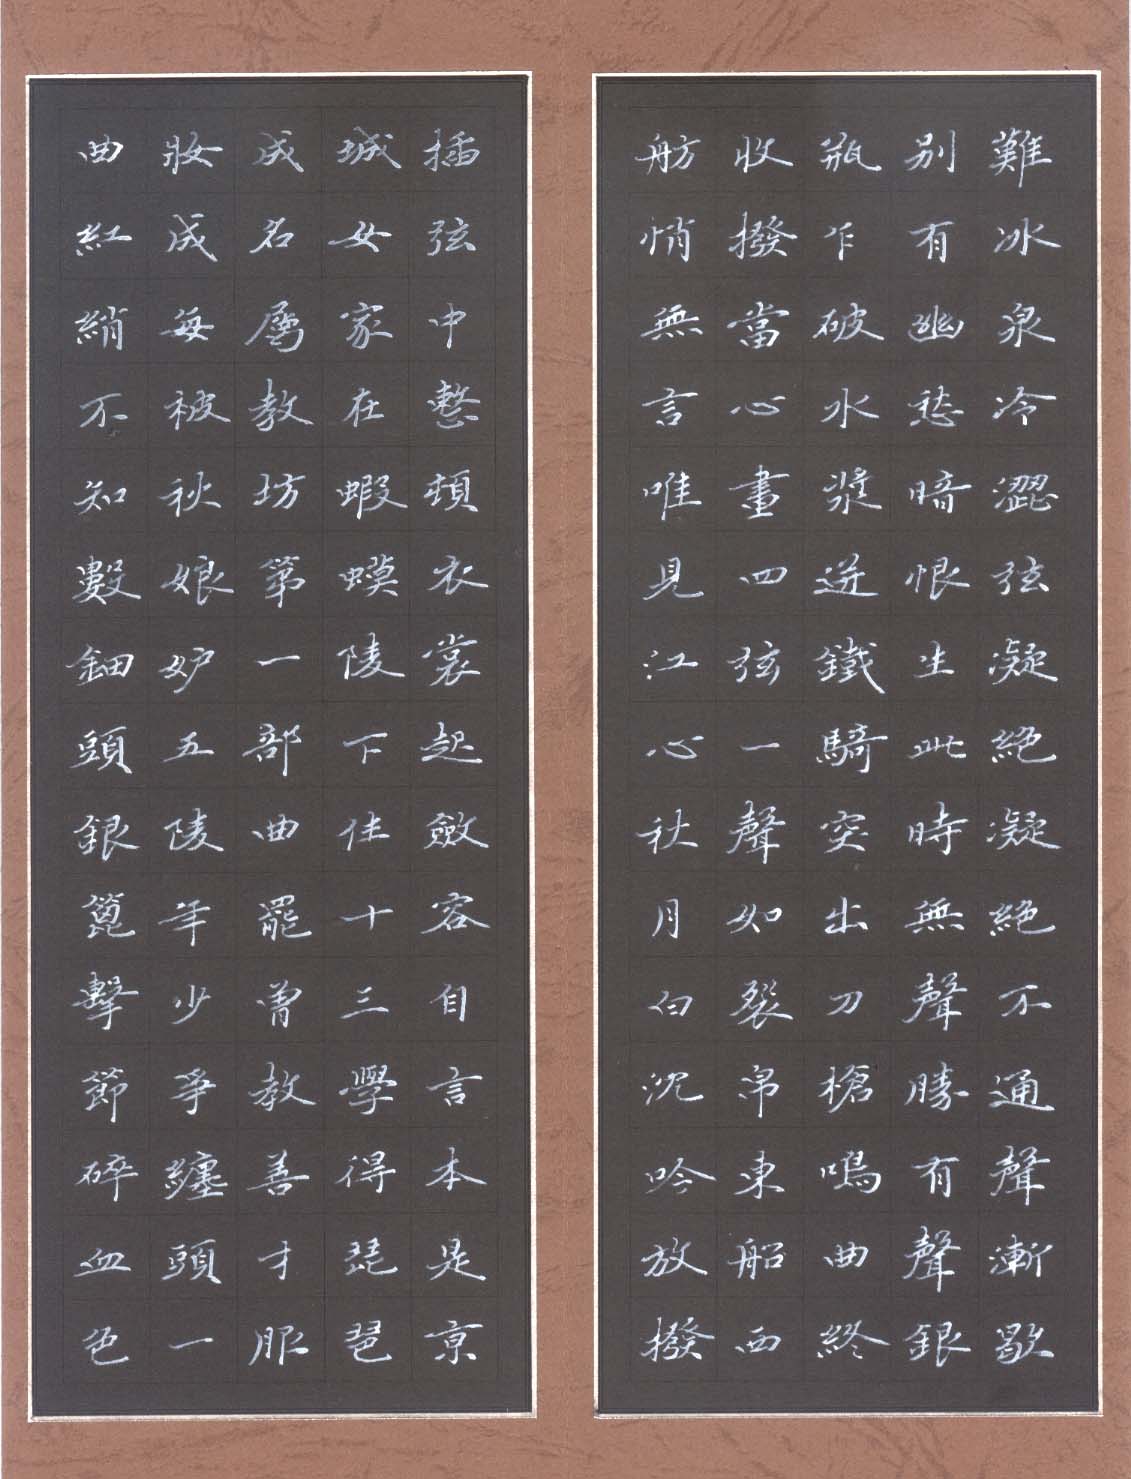 難冰泉冷澀弦凝絕凝絕不通聲漸歇
別有幽愁暗恨生此時無聲勝有聲銀
瓶乍破水漿迸鐵騎突出刀槍鳴曲終
收撥當心畫四弦一聲如裂帛東船西
舫悄無言唯見江心秋月白沈吟放撥
插弦中整頓衣裳起斂容自言本是京
城女家在蝦蟆陵下住十三學得琵琶
成名屬教坊第一部曲罷曾教善才服
妝成每被秋娘妒五陵年少爭纏頭一
曲紅綃不知數鈿頭銀篦擊節碎血色